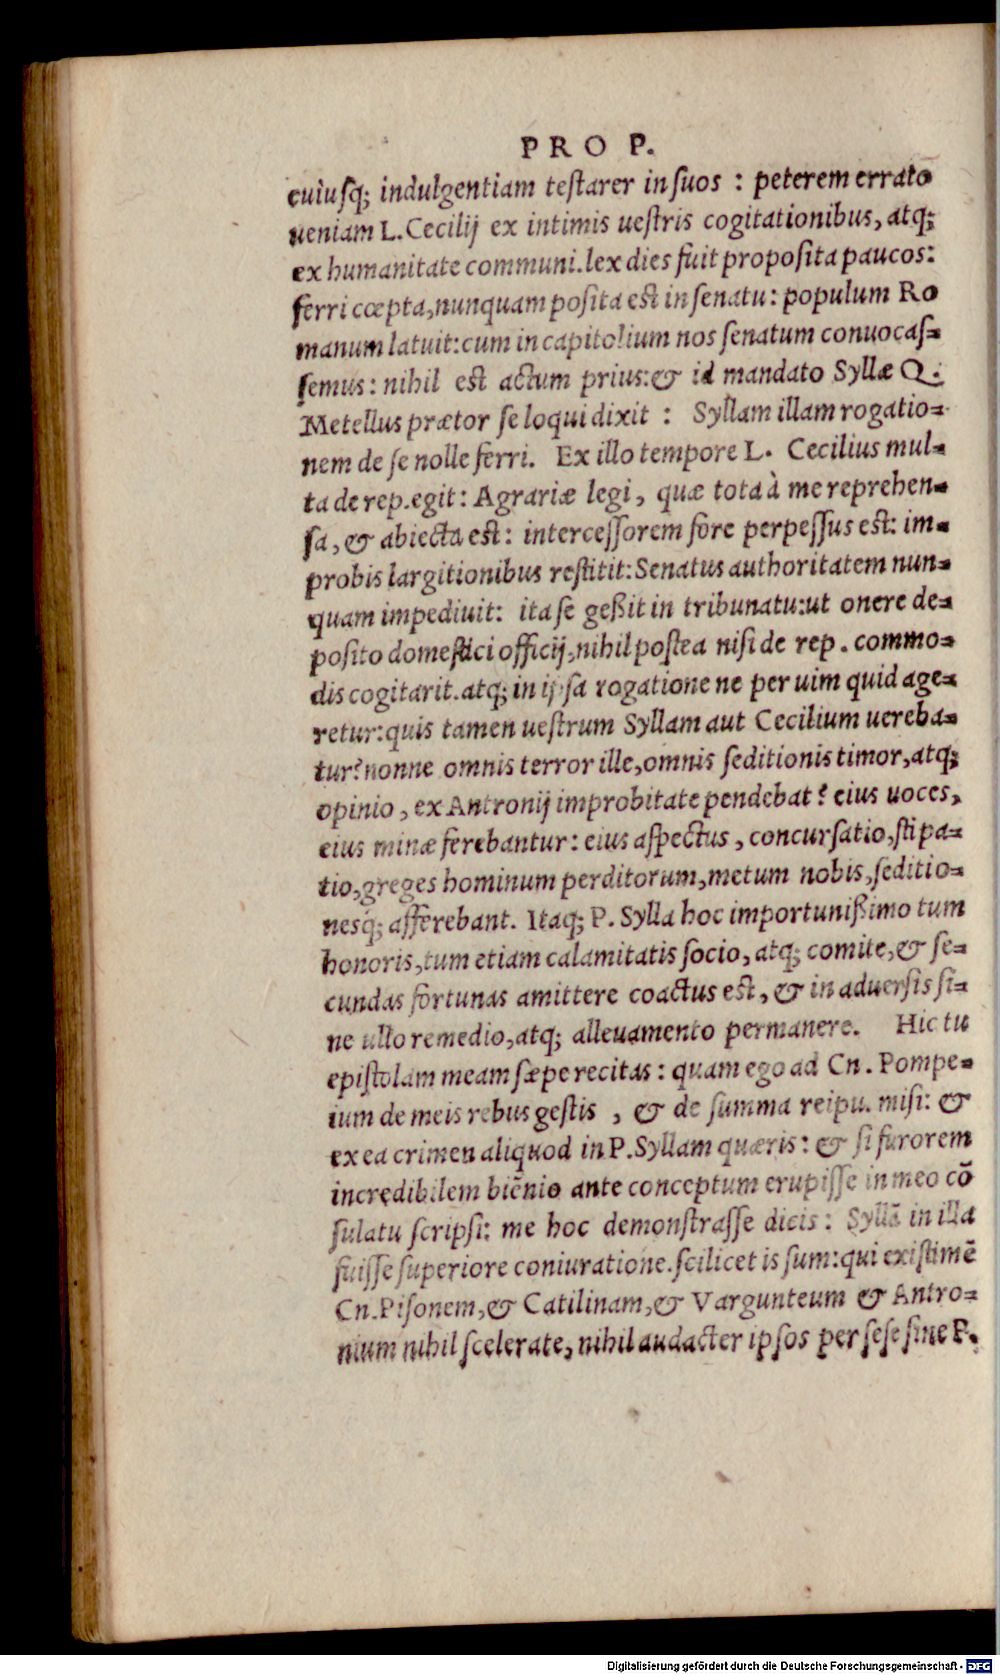 PRO P.
cuiusq; indulgentiam testarer in suos : peterem errato
ueniam L. Cecilij ex intimis uestris cogitationibus, atq;
ex humanitate communi. lex dies fuit proposita paucos:
ferri cœpta, nunquam posita est in senatu: populum Ro
manum latuit: cum in capitolium nos senatum conuocas=
semus: nihil est actum prius: & id mandato Syllæ Q.
Metellus prætor se loqui dixit : Syllam illam rogatio=
nem de se nolle ferri. Ex illo tempore L. Cecilius mul=
ta de rep. egit: Agrariæ legi, quæ tota à me reprehen=
sa, & abiecta est: intercessorem fore perpessus est: im=
probis largitionibus restitit: Senatus authoritatem nun=
quam impediuit: ita se geßit in tribunatu: ut onere de=
posito domestici officij, nihil postea nisi de rep. commo=
dis cogitarit. atq; in ipsa rogatione ne per uim quid age=
retur: quis tamen uestrum Syllam aut Cecilium uereba=
tur? nonne omnis terror ille, omnis seditionis timor, atq;
opinio, ex Antronij improbitate pendebat? eius uoces,
eius minæ ferebantur: eius aspectus, concursatio, stipa=
tio, greges hominum perditorum, metum nobis, seditio=
nesq́; afferebant. Itaq; P. Sylla hoc importunißimo tum
honoris, tum etiam calamitatis socio, atq; comite, & se=
cundas fortunas amittere coactus est, & in aduersis si=
ne ullo remedio, atq; alleuamento permanere. Hic tu
epistolam meam sæpe recitas: quam ego ad Cn. Pompe=
ium de meis rebus gestis , & de summa reipu. misi: &
ex ea crimen aliquod in P. Syllam quæris: & si furorem
incredibilem biēnio ante conceptum erupisse in meo cō
sulatu scripsi: me hoc demonstrasse dicis: Syllā in illa
fuisse superiore coniuratione. scilicet is sum: qui existimē
Cn. Pisonem, & Catilinam, & Vargunteum & Antro=
nium nihil scelerate, nihil audacter ipsos per sese sine P.
Digitalisierung gefördert durch die Deutsche Forschungsgemeinschaft - DFG